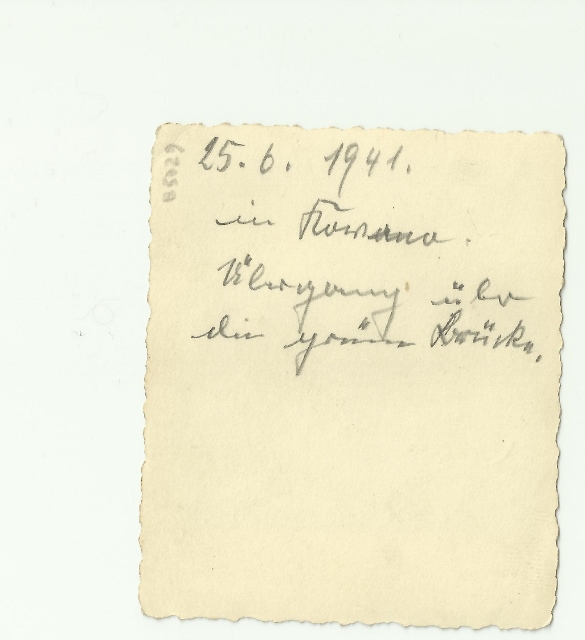 25. 6. 1941.
in Kowano.
Übergang über
die grüne Brücke.